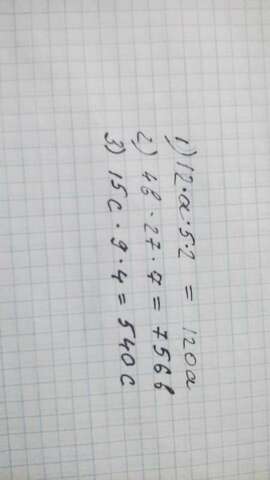 1) 12·a·5·2 = 120a
2) 4b·27·7 = 756b
3) 15c·9·4 = 540c